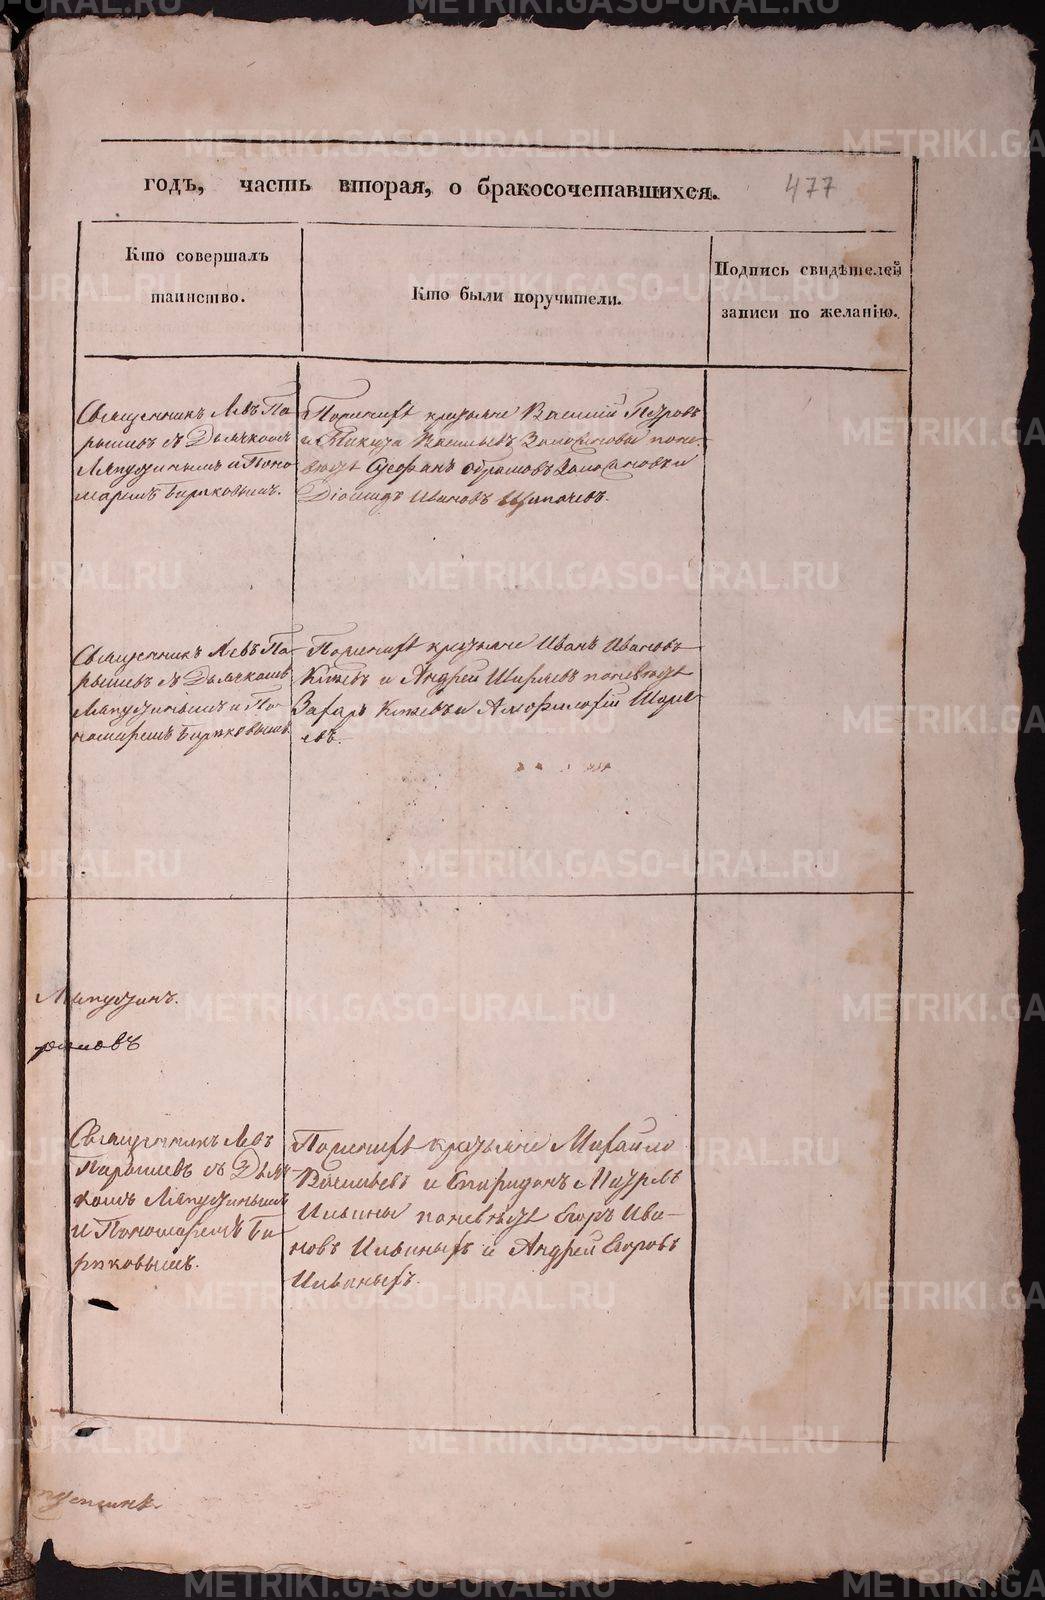 годъ, часть вторая, о бракосочетавшихся. 477
Кто совершалъ
таинство.
Кто были поручители.
Подпись свидѣтелей
записи по желанію.
Священникъ Левъ Па-
рышевъ съ Дьячкомъ
Ляпустинымъ и Поно-
маремъ Бирюковымъ.
По женихѣ крестьяне Василій Петровъ
и Никита Васильевъ по не-
вѣстѣ Стефанъ и
Діомидъ Ивановъ Щипачевъ.
Священникъ Левъ Па-
рышевъ съ Дьячкомъ
Ляпустинымъ и По-
номаремъ Бирюковымъ.
По женихѣ крестьяне Иванъ Ивановъ
Князевъ и Андрей Ширяевъ по невѣстѣ
Захаръ Князевъ и Амфилофій Ширя-
евъ.
Ляпустинъ.
Священникъ Левъ
Парышевъ съ Дьяч-
комъ Ляпустинымъ
и Пономаремъ Би-
рюковымъ.
По женихѣ крестьяне Михайло
Васильевъ и Спиридонъ
Ильины по невѣстѣ Егоръ Ива-
новъ Ильиныхъ и Андрей Егоровъ
Ильиныхъ.
METRIKI.GASO-URAL.RU